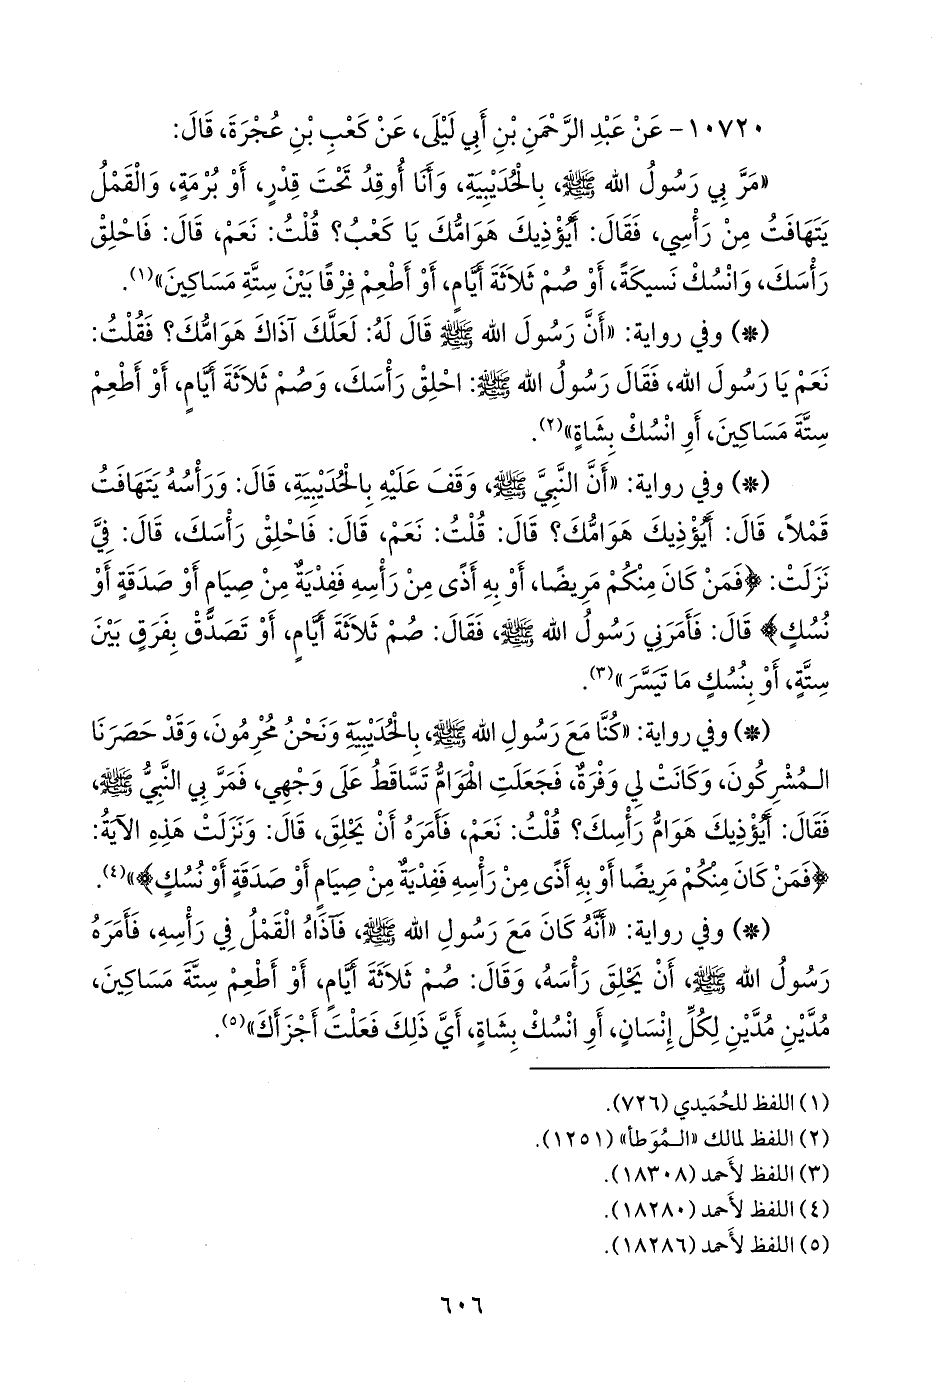 ١٠٧٢٠- عَنْ عَبْدِ الرَّحْمَنِ بْنِ أَبِي لَيْلَى، عَنْ كَعْبِ بْنِ عُجْرَةَ، قَالَ:
«مَرَّ بِي رَسُولُ الله ﷺ، بِالْحُدَيْبِيَةِ، وَأَنَا أُوقِدُ تَحْتَ قِدْرٍ، أَوْ بُرْمَةٍ، وَالْقَمْلُ
يَتَهَافَتُ مِنْ رَأْسِي، فَقَالَ: أَيُؤْذِيكَ هَوَامُّكَ يَا كَعْبُ؟ قُلْتُ: نَعَمْ، قَالَ: فَاحْلِقْ
رَأْسَكَ، وَانْسُكْ نَسِيكَةً، أَوْ صُمْ ثَلاَثَةَ أَيَّامٍ، أَوْ أَطْعِمْ فِرْقًا بَيْنَ سِتَّةِ مَسَاكِينَ»(١).
(*) وفي رواية: «أَنَّ رَسُولَ الله ﷺ قَالَ لَهُ: لَعَلَّكَ آذَاكَ هَوَامُّكَ؟ فَقُلْتُ:
نَعَمْ يَا رَسُولَ الله، فَقَالَ رَسُولُ الله ﷺ: احْلِقْ رَأْسَكَ، وَصُمْ ثَلاَثَةَ أَيَّامٍ، أَوْ أَطْعِمْ
سِتَّةَ مَسَاكِينَ، أَوِ انْسُكْ بِشَاةٍ»(٢).
(*) وفي رواية: «أَنَّ النَّبِيَّ ﷺ، وَقَفَ عَلَيْهِ بِالْحُدَيْبِيَةِ، قَالَ: وَرَأْسُهُ يَتَهَافَتُ
قَمْلاً، قَالَ: أَيُؤْذِيكَ هَوَامُّكَ؟ قَالَ: قُلْتُ: نَعَمْ، قَالَ: فَاحْلِقْ رَأْسَكَ، قَالَ: فِيَّ
نَزَلَتْ: ﴿فَمَنْ كَانَ مِنْكُمْ مَرِيضًا، أَوْ بِهِ أَذًى مِنْ رَأْسِهِ فَفِدْيَةٌ مِنْ صِيَامٍ أَوْ صَدَقَةٍ أَوْ
نُسُكٍ﴾ قَالَ: فَأَمَرَنِي رَسُولُ الله ﷺ، فَقَالَ: صُمْ ثَلاَثَةَ أَيَّامٍ، أَوْ تَصَدَّقْ بِفَرَقٍ بَيْنَ
سِتَّةٍ، أَوْ بِنُسُكٍ مَا تَيَسَّرَ»(٣).
(*) وفي رواية: «كُنَّا مَعَ رَسُولِ الله ﷺ، بِالْحُدَيْبِيَةِ وَنَحْنُ مُحْرِمُونَ، وَقَدْ حَصَرَنَا
الـمُشْرِكُونَ، وَكَانَتْ لِي وَفْرَةٌ، فَجَعَلَتِ الْهَوَامُّ تَسَّاقَطُ عَلَى وَجْهِي، فَمَرَّ بِي النَّبِيُّ ﷺ،
فَقَالَ: أَيُؤْذِيكَ هَوَامُّ رَأْسِكَ؟ قُلْتُ: نَعَمْ، فَأَمَرَهُ أَنْ يَحْلِقَ، قَالَ: وَنَزَلَتْ هَذِهِ الآيَةُ:
﴿فَمَنْ كَانَ مِنْكُمْ مَرِيضًا أَوْ بِهِ أَذًى مِنْ رَأْسِهِ فَفِدْيَةٌ مِنْ صِيَامٍ أَوْ صَدَقَةٍ أَوْ نُسُكٍ﴾»(٤).
(*) وفي رواية: «أَنَّهُ كَانَ مَعَ رَسُولِ الله ﷺ، فَآذَاهُ الْقَمْلُ فِي رَأْسِهِ، فَأَمَرَهُ
رَسُولُ الله ﷺ، أَنْ يَحْلِقَ رَأْسَهُ، وَقَالَ: صُمْ ثَلاَثَةَ أَيَّامٍ، أَوْ أَطْعِمْ سِتَّةَ مَسَاكِينَ،
مُدَّيْنِ مُدَّيْنِ لِكُلِّ إِنْسَانٍ، أَوِ انْسُكْ بِشَاةٍ، أَيَّ ذَلِكَ فَعَلْتَ أَجْزَأَكَ»(٥).
(١) اللفظ للحُمَيدي (٧٢٦).
(٢) اللفظ لمالك «الـمُوَطأ» (١٢٥١).
(٣) اللفظ لأَحمد (١٨٣٠٨).
(٤) اللفظ لأَحمد (١٨٢٨٠).
(٥) اللفظ لأَحمد (١٨٢٨٦).
٦٠٦